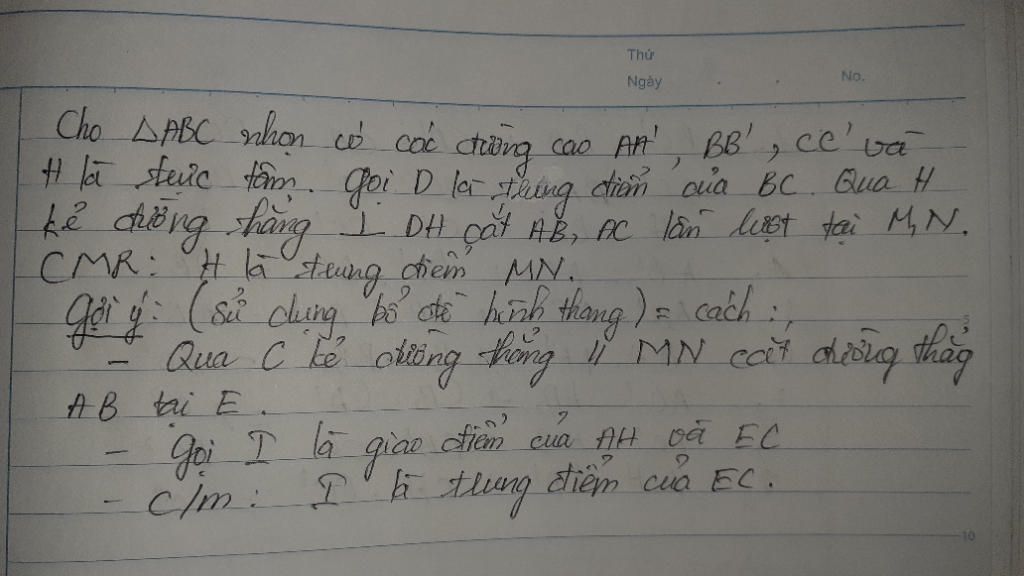 Thứ
Ngày . . No.
Cho △ABC nhọn có các đường cao AA', BB', CC' và
H là trực tâm. Gọi D là trung điểm của BC. Qua H
kẻ đường thẳng ⊥ DH cắt AB, AC lần lượt tại M, N.
CMR: H là trung điểm MN.
Gợi ý: (sử dụng bổ đề hình thang) = cách:,
- Qua C kẻ đường thẳng // MN cắt đường thẳg
AB tại E.
- Gọi I là giao điểm của AH và EC
- C/m: I là trung điểm của EC.
10